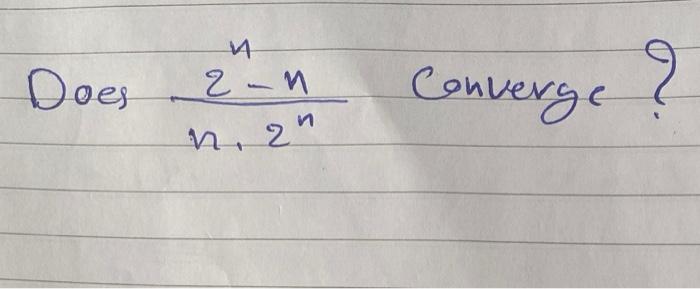 Does (2^n - n)/(n . 2^n) Converge ?